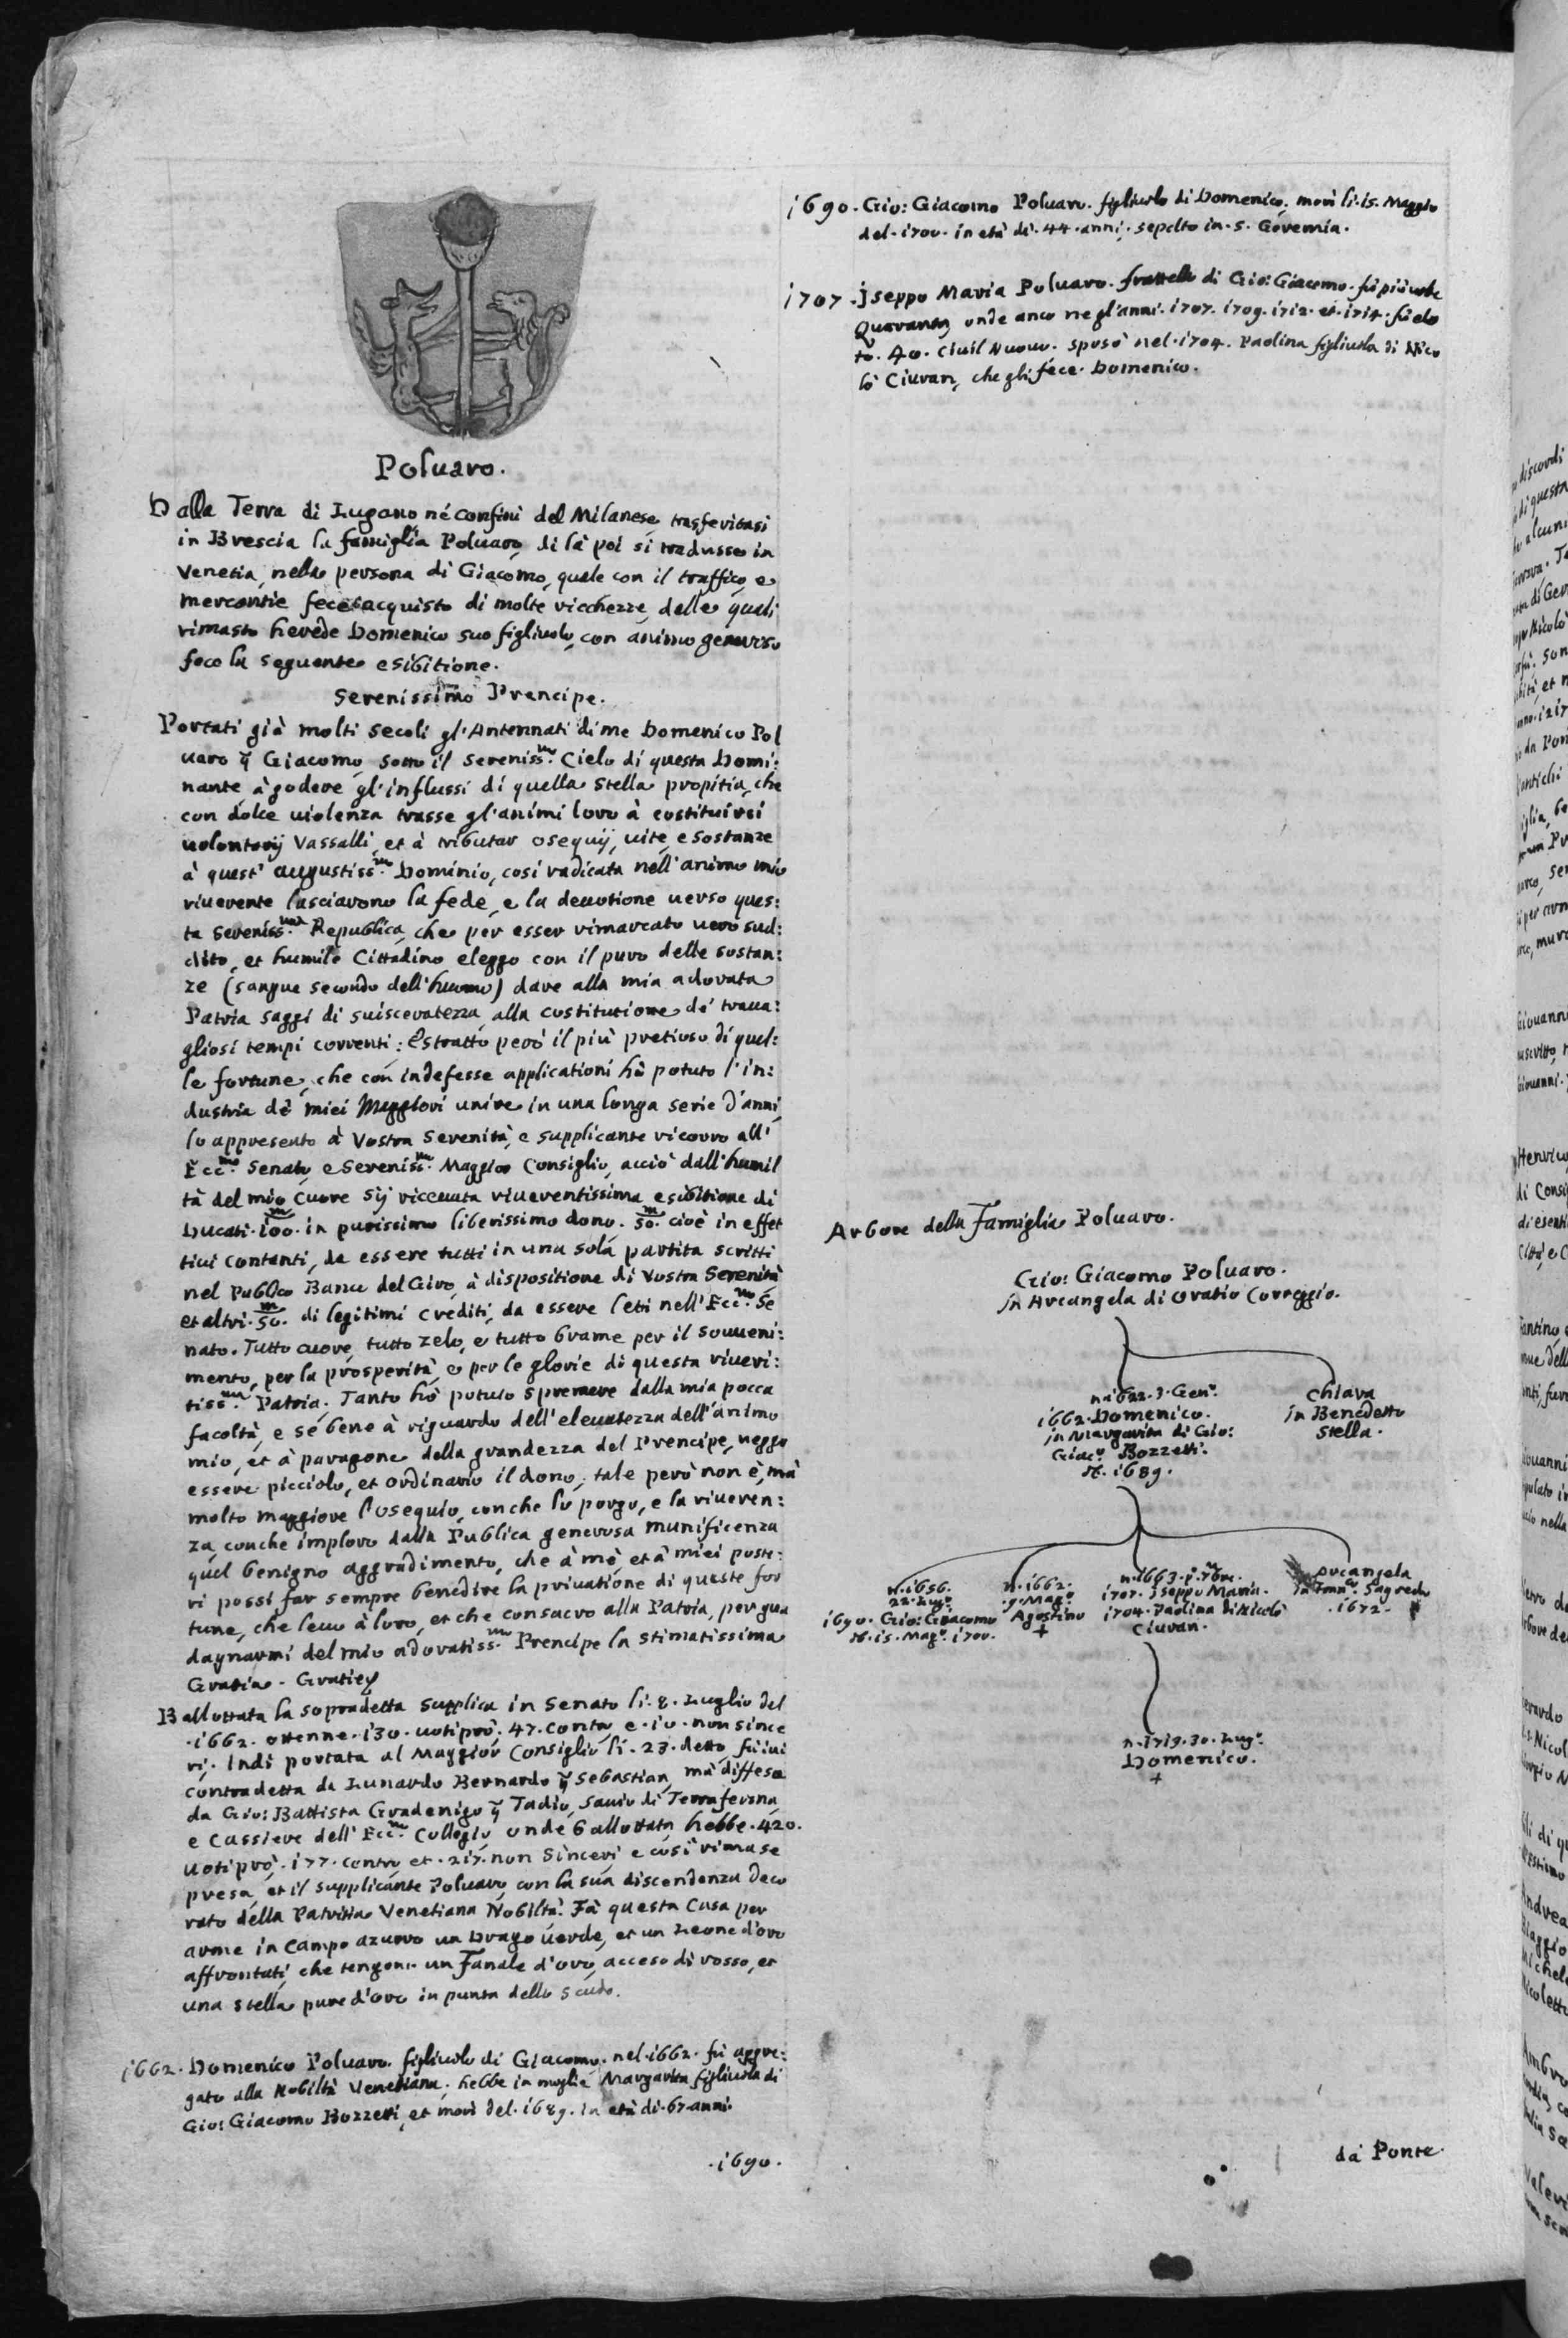 Poluaro.
Dalla Terra di Lugano né confini del Milanese, trasferitasi
in Brescia la famiglia Poluaro, di là poi si tradusse in
Venetia, nella persona di Giacomo, quale con il traffico, e
mercantie fece acquisto di molte ricchezze, delle quali
rimasto herede Domenico suo figliuolo, con animo generoso
fece la seguente esibitione.
Serenissimo Prencipe.
Portati già molti secoli gl'Antennati di me Domenico Pol
uaro q̃ Giacomo, sotto il Sereniss.mo Cielo di questa Domi:
nante, à godere gl'influssi di quella stella propitia, che
con dolce uiolenza trasse gl'animi loro à costituirsi
uolontarij Vassalli, et à tributar osequij, uite, e sostanze
à quest' augustiss.mo Dominio, cosi radicata nell'animo mio
riuerente lasciarono la fede, e la deuotione uerso ques:
ta Sereniss.ma Republica, che per esser rimarcato uero sud:
dito, et humile Cittadino eleggo con il puro delle sostan:
ze (sangue secondo dell'huomo) dare alla mia adorata
Patria saggi di suisceratezza, alla costitutione de' traua:
gliosi tempi correnti: Estratto però il più pretioso di quel:
le fortune, che con indefesse applicationi hà potuto l'in:
dustria dé miei Maggiori unire in una longa serie d'anni,
lo appresento à Vostra Serenità, e supplicante ricorro all'
Ecc.mo Senato, e Sereniss.mo Maggior Consiglio, acciò dall'humil
tà del mio cuore sij riceuuta riuerentissima esibitione di
Ducati .100.m in purissimo liberissimo dono .50.m cioè in effet
tiui contanti, da essere tutti in una sola partita scritti
nel Publico Banco del Giro, à dispositione di Vostra Serenità
et altri .50.m di legitimi crediti, da essere letti nell'Ecc.mo Se
nato. Tutto cuore, tutto zelo, e tutto brame per il souueni:
mento, per la prosperità, e per le glorie di questa riueri:
tiss.ma Patria. Tanto hò potuto spremere dalla mia pocca
facoltà, e sé bene à riguardo dell'eleuatezza dell'animo
mio, et à paragone della grandezza del Prencipe, ueggo
essere picciolo, et ordinario il dono, tale però non è, mà
molto maggiore l'osequio, con che lo porgo, e la riueren:
za, con che imploro dalla Publica generosa munificenza
quel benigno aggradimento, che à mè, et à miei poste:
ri possi far sempre benedire la priuatione di queste for
tune, che leuo à loro, et che consacro alla Patria, per gua
dagnarmi del mio adoratiss.mo Prencipe la stimatissima
Gratia. Gratie
Ballottata la sopradetta supplica in Senato li .8. Luglio del
.1662. ottenne .130. uoti prò, 47. contra, e .10. non since
ri. Indi portata al Maggior Consiglio li .23. detto, fù iui
contradetta da Lunardo Bernardo q̃ Sebastian, mà diffesa
da Gio: Battista Gradenigo q̃ Tadio, Sauio di Terraferma,
e Cassiere dell'Ecc.mo Collegio, onde ballottata hebbe .420.
uoti prò .177. contro, et .217. non sinceri, e così rimase
presa, et il supplicante Poluaro, con la sua discendenza deco
rato della Patritia Venetiana Nobiltà. Fà questa Casa per
arme in Campo azurro un Drago uerde, et un Leone d'oro
affrontati, che tengono un Fanale d'oro, acceso di rosso, et
una stella pure d'oro in punta dello scudo.
1662. Domenico Poluaro figliuolo di Giacomo, nel .1662. fù aggre:
gato alla Nobiltà Venetiana; hebbe in moglie Margarita figliuola di
Gio: Giacomo Bozzetti, et morì del .1689. in età di .67. anni.
.1690.
1690. Gio: Giacomo Poluaro figliuolo di Domenico, morì li .15. Maggio
del .1700. in età di .44. anni, sepolto in S.
1707. Iseppo Maria Poluaro fratello di Gio: Giacomo fù più uolte
onde anco negl'anni .1707. 1709. 1712. et .1714. fù elo
to .40. Ciuil Nuouo. sposò nel .1704. Paolina figliuola di Nico
lò Ciuran, che gli fece Domenico.
Arbore della Famiglia Poluaro.
Gio: Giacomo Poluaro.
in Arcangela di Oratio Coreggio.
n. 1622. 3. Gen.o
1662. Domenico.
in Margarita di Gio:
Giac.o Bozzetti.
M. 1689.
Chiara
in Benedetto
Stella.
n. 1656.
22. Lug.o
1690. Gio: Giacomo
M. 15. Mag.o 1700.
n. 1662.
.9. Mag.o
Agostino
+
n. 1663. p.o 7bre.
1707. Iseppo Maria.
1704. Paolina di Nicolò
Ciuran.
Arcangela
in Sagredo
.1672.
n. 1719. 30. Lug.o
Domenico.
+
da Ponte